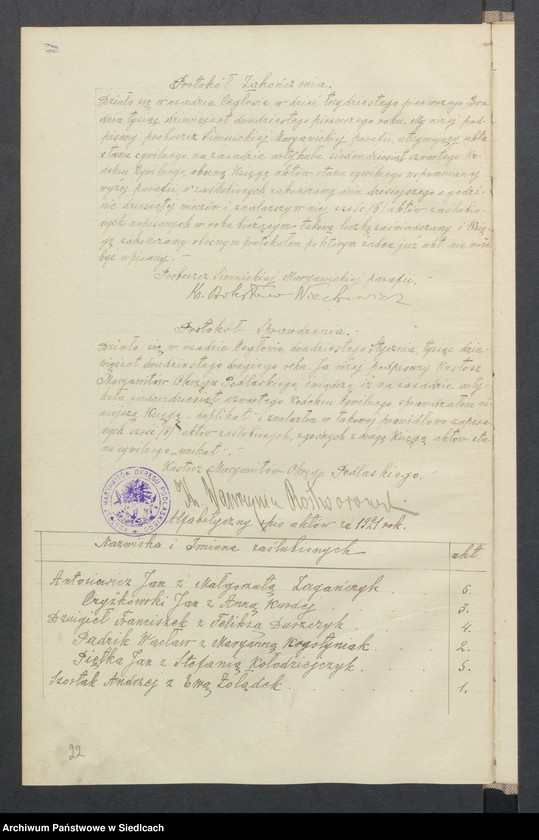 Protokół Zakończenia.
Działo się w osadzie Cegłowie w dzień trzydziestego pierwszego Gru-
dnia tysiąc dziewięćset dwudziestego pierwszego roku. My niżej pod-
pisany proboszcz Siennickiej Maryawickiej parafii, utrzymujący akta
stanu cywilnego, na zasadzie artykułu siedemdziesiąt czwartego Ko-
deksu Cywilnego, obecną Księgę aktów stanu cywilnego wspomnianej
wyżej parafii o zaślubionych zakończamy dnia dzisiejszego o godzi-
nie dziesiątej wieczór i znalazłszy w niej sześć /6/ aktów zaślubio-
nych wpisanych w roku bieżącym, takową liczbę zaświadczamy i Księ-
gę zakańczamy obecnym protokołem po którym żaden już akt nie może
być wpisany.-
Proboszcz Siennickiej Maryawickiej parafii.-
Protokół Sprawdzenia.-
Działo się w osadzie Cegłowie, dwudziestego Stycznia, tysiąc dzie-
więćset dwudziestego drugiego roku. Ja niżej podpisany Kustosz
Maryawitów Okręgu Podlaskiego świadczę iż na zasadzie arty-
kułu siedemdziesiąt czwartego Kodeksu Cywilnego, sprawdzałem ni-
niejszą Księgę „duplikat" i znalazłem w takowej prawidłowo zapisa-
nych sześć /6/ aktów zaślubionych, zgodnych z drugą Księgą aktów sta-
nu cywilnego „unikat".-
Kustosz Maryawitów Okręgu Podlaskiego.-
Alfabetyczny spis aktów za 1921 rok.
Nazwiska i Imiona zaślubionych akt
Antosiewicz Jan z Małgorzatą Zagańczyk 6.
Czyżkowski Jan z Anną Kurdej 3.
Dzugieł Franciszek z Feliksą Duszczyk 4.
Padzik Wacław z Maryanną Krystyniak 2.
Piętka Jan z Stefanią Kołodziejczyk 5.
Szostak Andrzej z Ewą Żołądek 1.
22
Archiwum Państwowe w Siedlcach